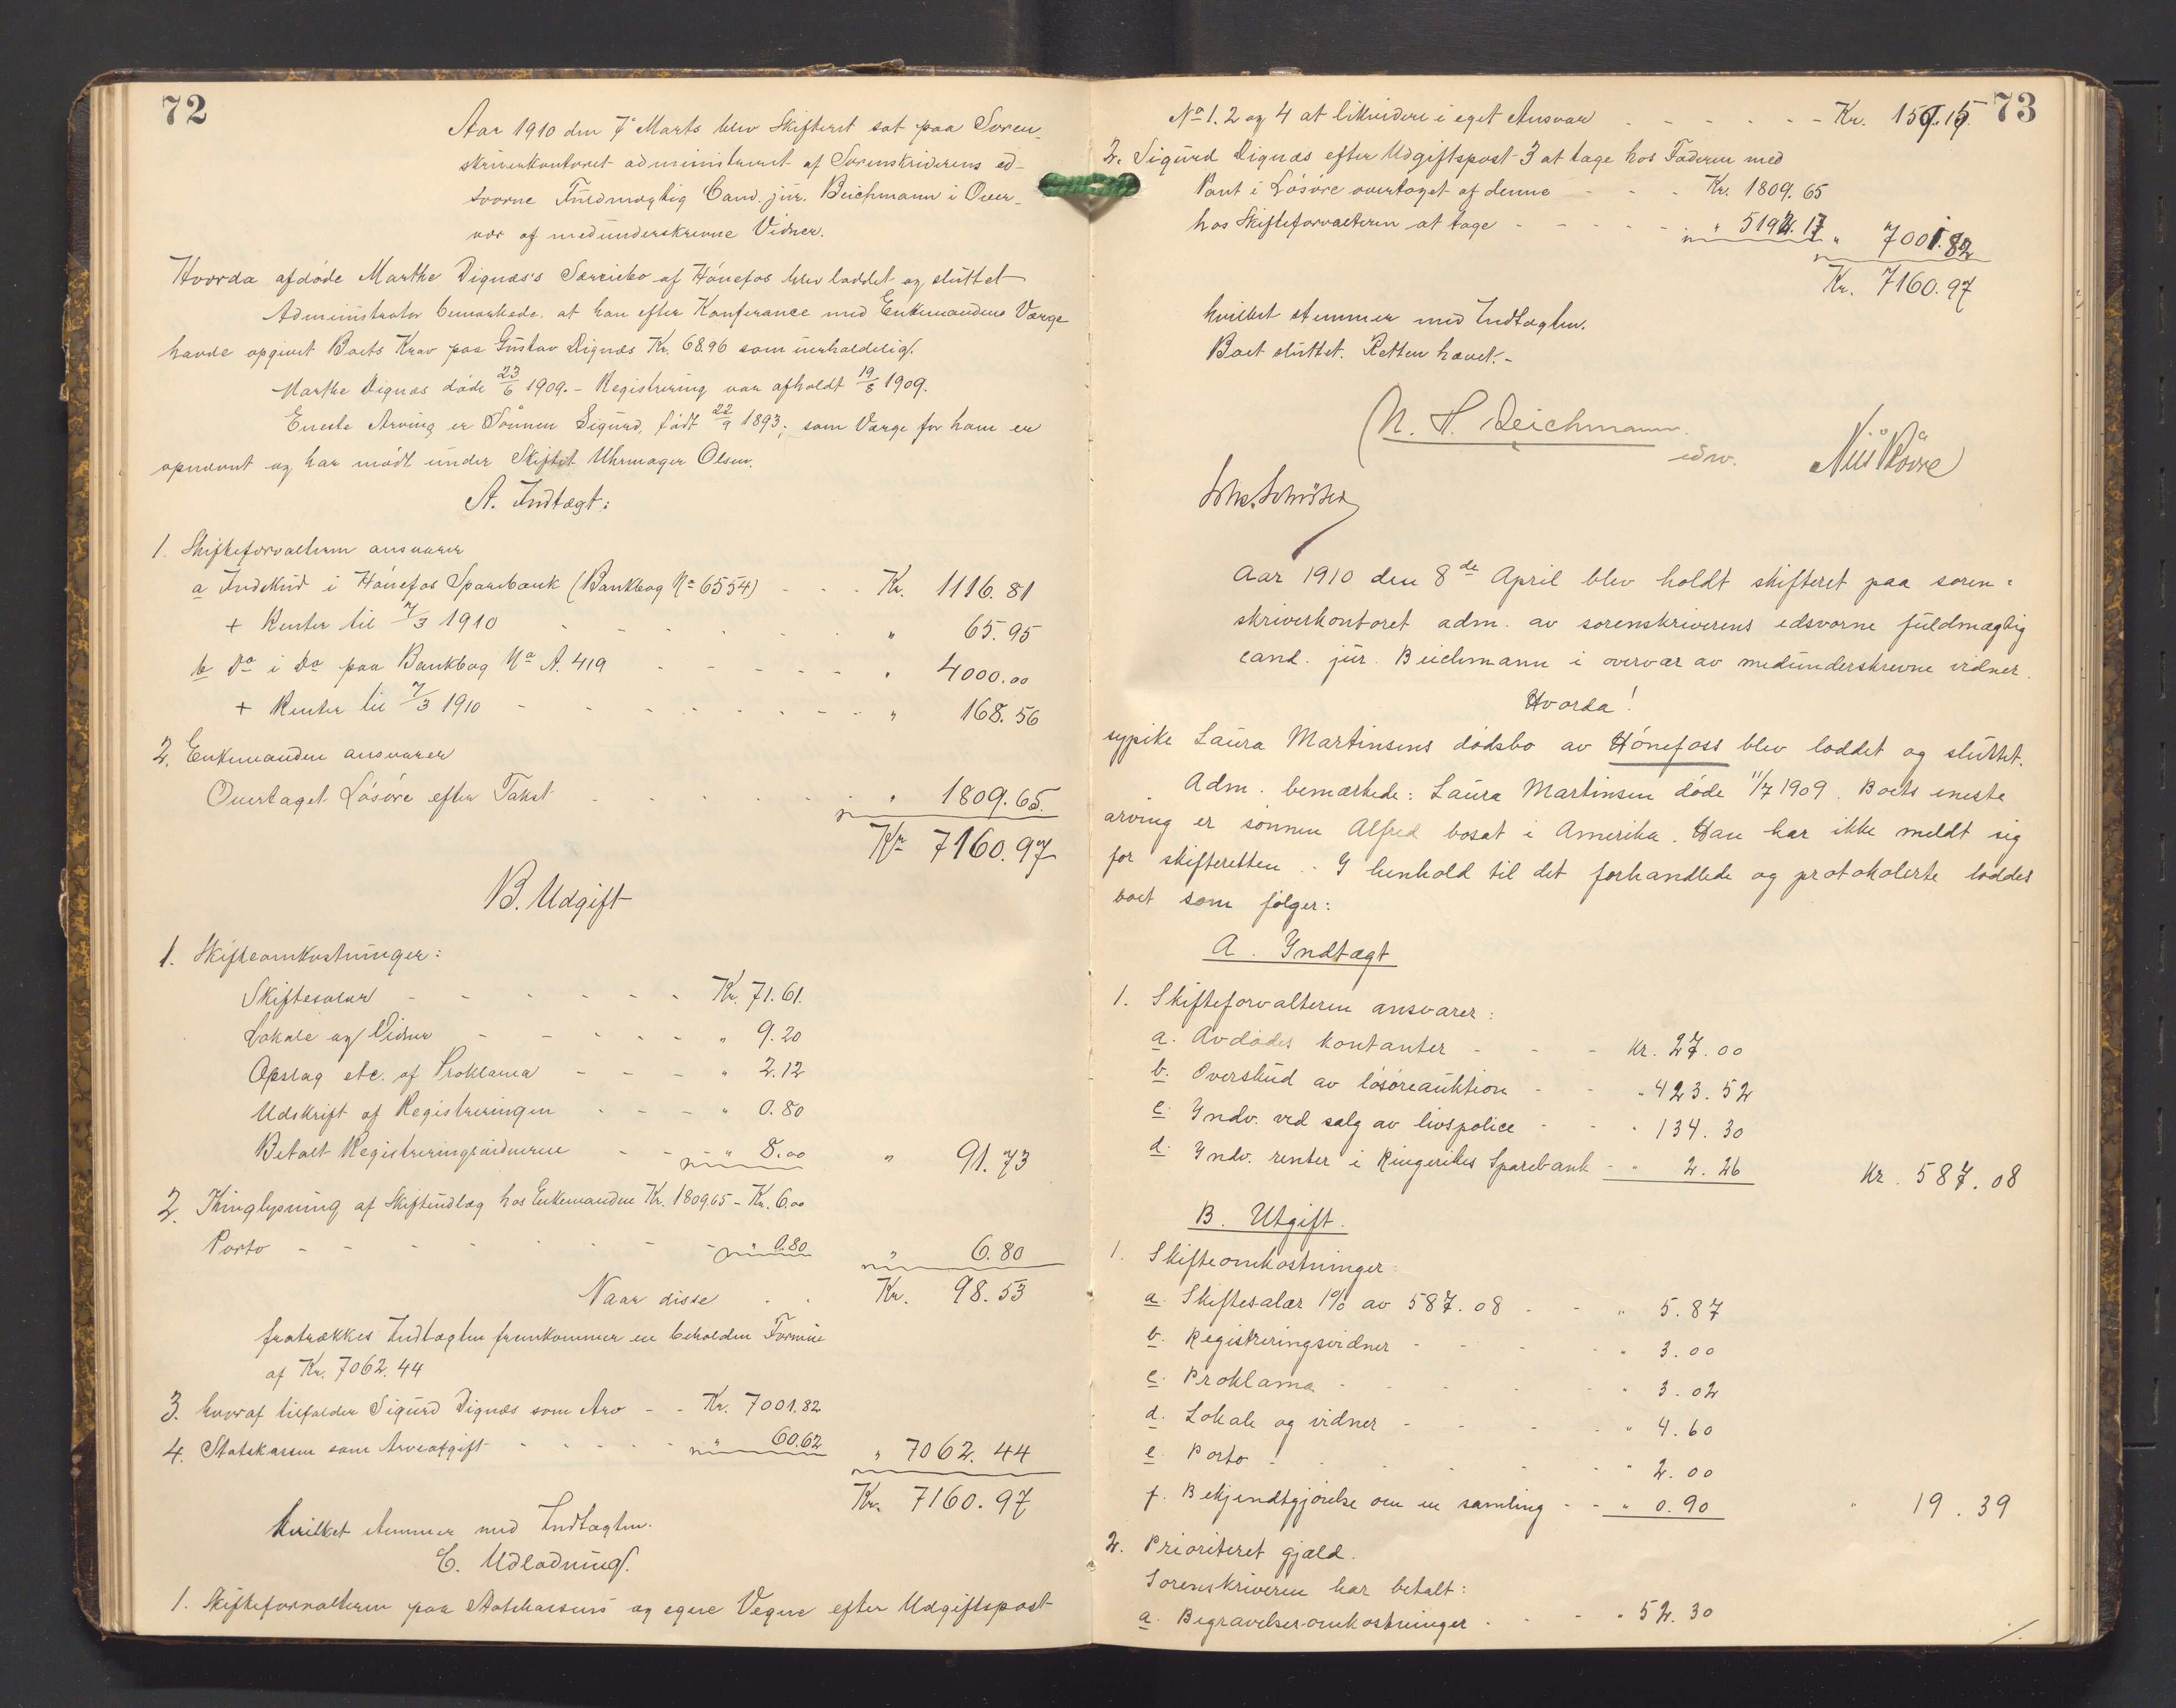 72
Aar 1910 den 7de Marts blev Skifteret sat paa Soren-
skriverkontoret administreret af Sorenskriverens ed-
svorne Fuldmægtig Cand. jur. Beichmann i Over-
vær af medunderskrevne Vidner.
Hvorda afdøde Marthe Dignæs's Særeiebo af Hønefos blev loddet og sluttet
Administrator bemærkede, at han efter Konferance med Enkemandens Værge
havde opgivet Boets Krav paa Gustav Dignæs Kr. 68.96 som uerholdelig.
Marthe Dignæs døde 23/6 1909. - Registrering var afholdt 19/8 1909.
Eneste Arving er Sønnen Sigurd, født 22/9 1893; som Værge for ham er
opnævnt og har mødt under Skiftet Uhrmager Olsen.
A. Indtægt:
1. Skifteforvalteren ansvarer
a Indskud i Hønefos Sparebank (Bankbog No 6554) - - - Kr. 1116.81
+ Renter til 7/3 1910 - - - - - - " 65.95
b Do i Do paa Bankbog No A. 419 - - - - - " 4000.00
+ Renter til 7/3 1910 - - - - - - - " 168.56
2. Enkemanden ansvarer
Overtaget Løsøre efter Takst - - - - - " 1809.65.
Kr 7160.97
B. Udgift
1. Skifteomkostninger:
Skiftesalær - - - - - - Kr. 71.61.
Lokale og Vidner - - - - - " 9.20
Opslag etc. af Proklama - - - " 2.12
Udskrift af Registreringen - - - " 0.80
Betalt Registreringsvidnerne - - " 8.00 " 91.73
2. Thinglysning af Skifteudlæg hos Enkemanden Kr. 1809.65 - Kr. 6.00
Porto - - - - - - - " 0.80 " 6.80
Naar disse - - Kr. 98.53
fratrækkes Indtægten fremkommer en beholden Formue
af Kr. 7062.44
3. hvoraf tilfalder Sigurd Dignæs som Arv - - Kr. 7001.82
4. Statskassen som Arveafgift - - - - - " 60.62 " 7062.44
Kr. 7160.97
hvilket stemmer med Indtægten.
C. Udlodning.
1. Skifteforvalteren paa Statskassens og egne Vegne efter Udgiftspost
73
No 1. 2 og 4 at likvidere i eget Ansvar - - - - - - Kr. 159.15
2. Sigurd Dignæs efter Udgiftspost 3 at tage hos Faderen med
Pant i Løsøre overtaget af denne - - - Kr. 1809.65
hos Skifteforvalteren at tage - - - - - " 5192.17 " 7001.82
Kr. 7160.97
hvilket stemmer med Indtægten.
Boet sluttet. Retten hævet. -
N. H. Beichmann.
edsv.
Aar 1910 den 8de April blev holdt skifteret paa soren-
skriverkontoret adm. av sorenskriverens edsvorne fuldmægtig
cand. jur. Beichmann i overvær av medunderskrevne vidner.
Hvorda!
sypike Laura Martinsens dødsbo av Hønefoss blev loddet og sluttet.
Adm. bemærkede: Laura Martinsen døde 11/7 1909. Boets eneste
arving er sønnen Alfred bosat i Amerika. Han har ikke meldt sig
for skifteretten. - I henhold til det forhandlede og protokolerte loddes
boet som følger:
A. Indtægt
1. Skifteforvalteren ansvarer:
a. Avdødes kontanter - - - Kr. 27.00
b. Overskud av løsøreauktion - - " 423.52
c. Indv. ved salg av livspolice - - " 134.30
d. Indv. renter i Ringerikes Sparebank - " 2.26 Kr. 587.08
B. Utgift.
1. Skifteomkostninger:
a. Skiftesalær 1% av 587.08 - - " 5.87
b. Registreringsvidner - - - - " 3.00
c. Proklama - - - - - " 3.02
d. Lokale og vidner - - - - " 4.60
e. Porto - - - - - - " 2.00
f. Bekjendtgjørelse om en samling - - " 0.90 " 19.39
2. Prioriteret gjæld.
Sorenskriveren har betalt:
a. Begravelsesomkostninger - - - " 52.30
./.